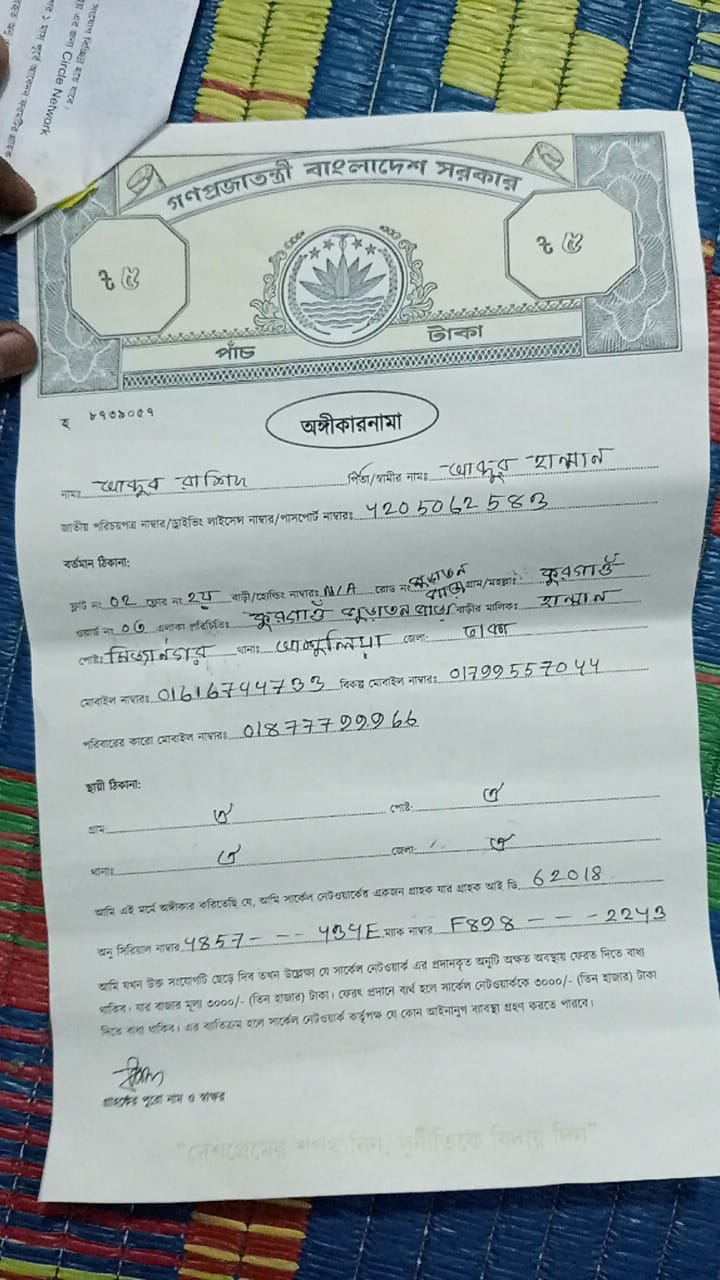 সংযোগ বিচ্ছিন্ন হয়ে যাবে।
এর জন্য Circle Network
গণপ্রজাতন্ত্রী বাংলাদেশ সরকার
৳ ৫
৳ ৫
পাঁচ টাকা
হ ৮৭৩৯০৫৭
অঙ্গীকারনামা
নামঃ আব্দুর রাশিদ পিতা/স্বামীর নামঃ আব্দুর হান্নান
জাতীয় পরিচয়পত্র নাম্বার/ড্রাইভিং লাইসেন্স নাম্বার/পাসপোর্ট নাম্বারঃ 4205062583
বর্তমান ঠিকানা:
ফ্লাট নং 02 ফ্লোর নং ২য় বাড়ী/হোল্ডিং নাম্বারঃ N/A রোড নং পুড়াতন পাড়া গ্রাম/মহল্লাঃ কুরগাওঁ
ওয়ার্ড নং 06 এলাকা পরিচিতিঃ কুরগাওঁ পুড়াতন পাড়া বাড়ীর মালিকঃ হান্নান
পোষ্টঃ থানাঃ আশুলিয়া জেলা: ঢাকা
মোবাইল নাম্বারঃ 01616744733 বিকল্প মোবাইল নাম্বারঃ 01799557044
পরিবারের কারো মোবাইল নাম্বারঃ 01877799966
স্থায়ী ঠিকানা:
গ্রাম ঐ পোষ্ট: ঐ
থানাঃ ঐ জেলা: ঐ
আমি এই মর্মে অঙ্গীকার করিতেছি যে, আমি সার্কেল নেটওয়ার্কের একজন গ্রাহক যার গ্রাহক আই ডি 62018
অনু সিরিয়াল নাম্বার 4857- -- 434E ম্যাক নাম্বার F898 - - - 2243
আমি যখন উক্ত সংযোগটি ছেড়ে দিব তখন উল্লেক্ষ্য যে সার্কেল নেটওয়ার্ক এর প্রদানকৃত অনুটি অক্ষত অবস্থায় ফেরত দিতে বাধ্য
থাকিব। যার বাজার মূল্য ৩০০০/- (তিন হাজার) টাকা। ফেরৎ প্রদানে ব্যর্থ হলে সার্কেল নেটওয়ার্ককে ৩০০০/- (তিন হাজার) টাকা
দিতে বাধ্য থাকিব। এর ব্যতিক্রম হলে সার্কেল নেটওয়ার্ক কর্তৃপক্ষ যে কোন আইনানুগ ব্যবস্থা গ্রহণ করতে পারবে।
গ্রাহকের পুরো নাম ও স্বাক্ষর
"দেশপ্রেমের শপথ নিন, দুর্নীতিকে বিদায় দিন"